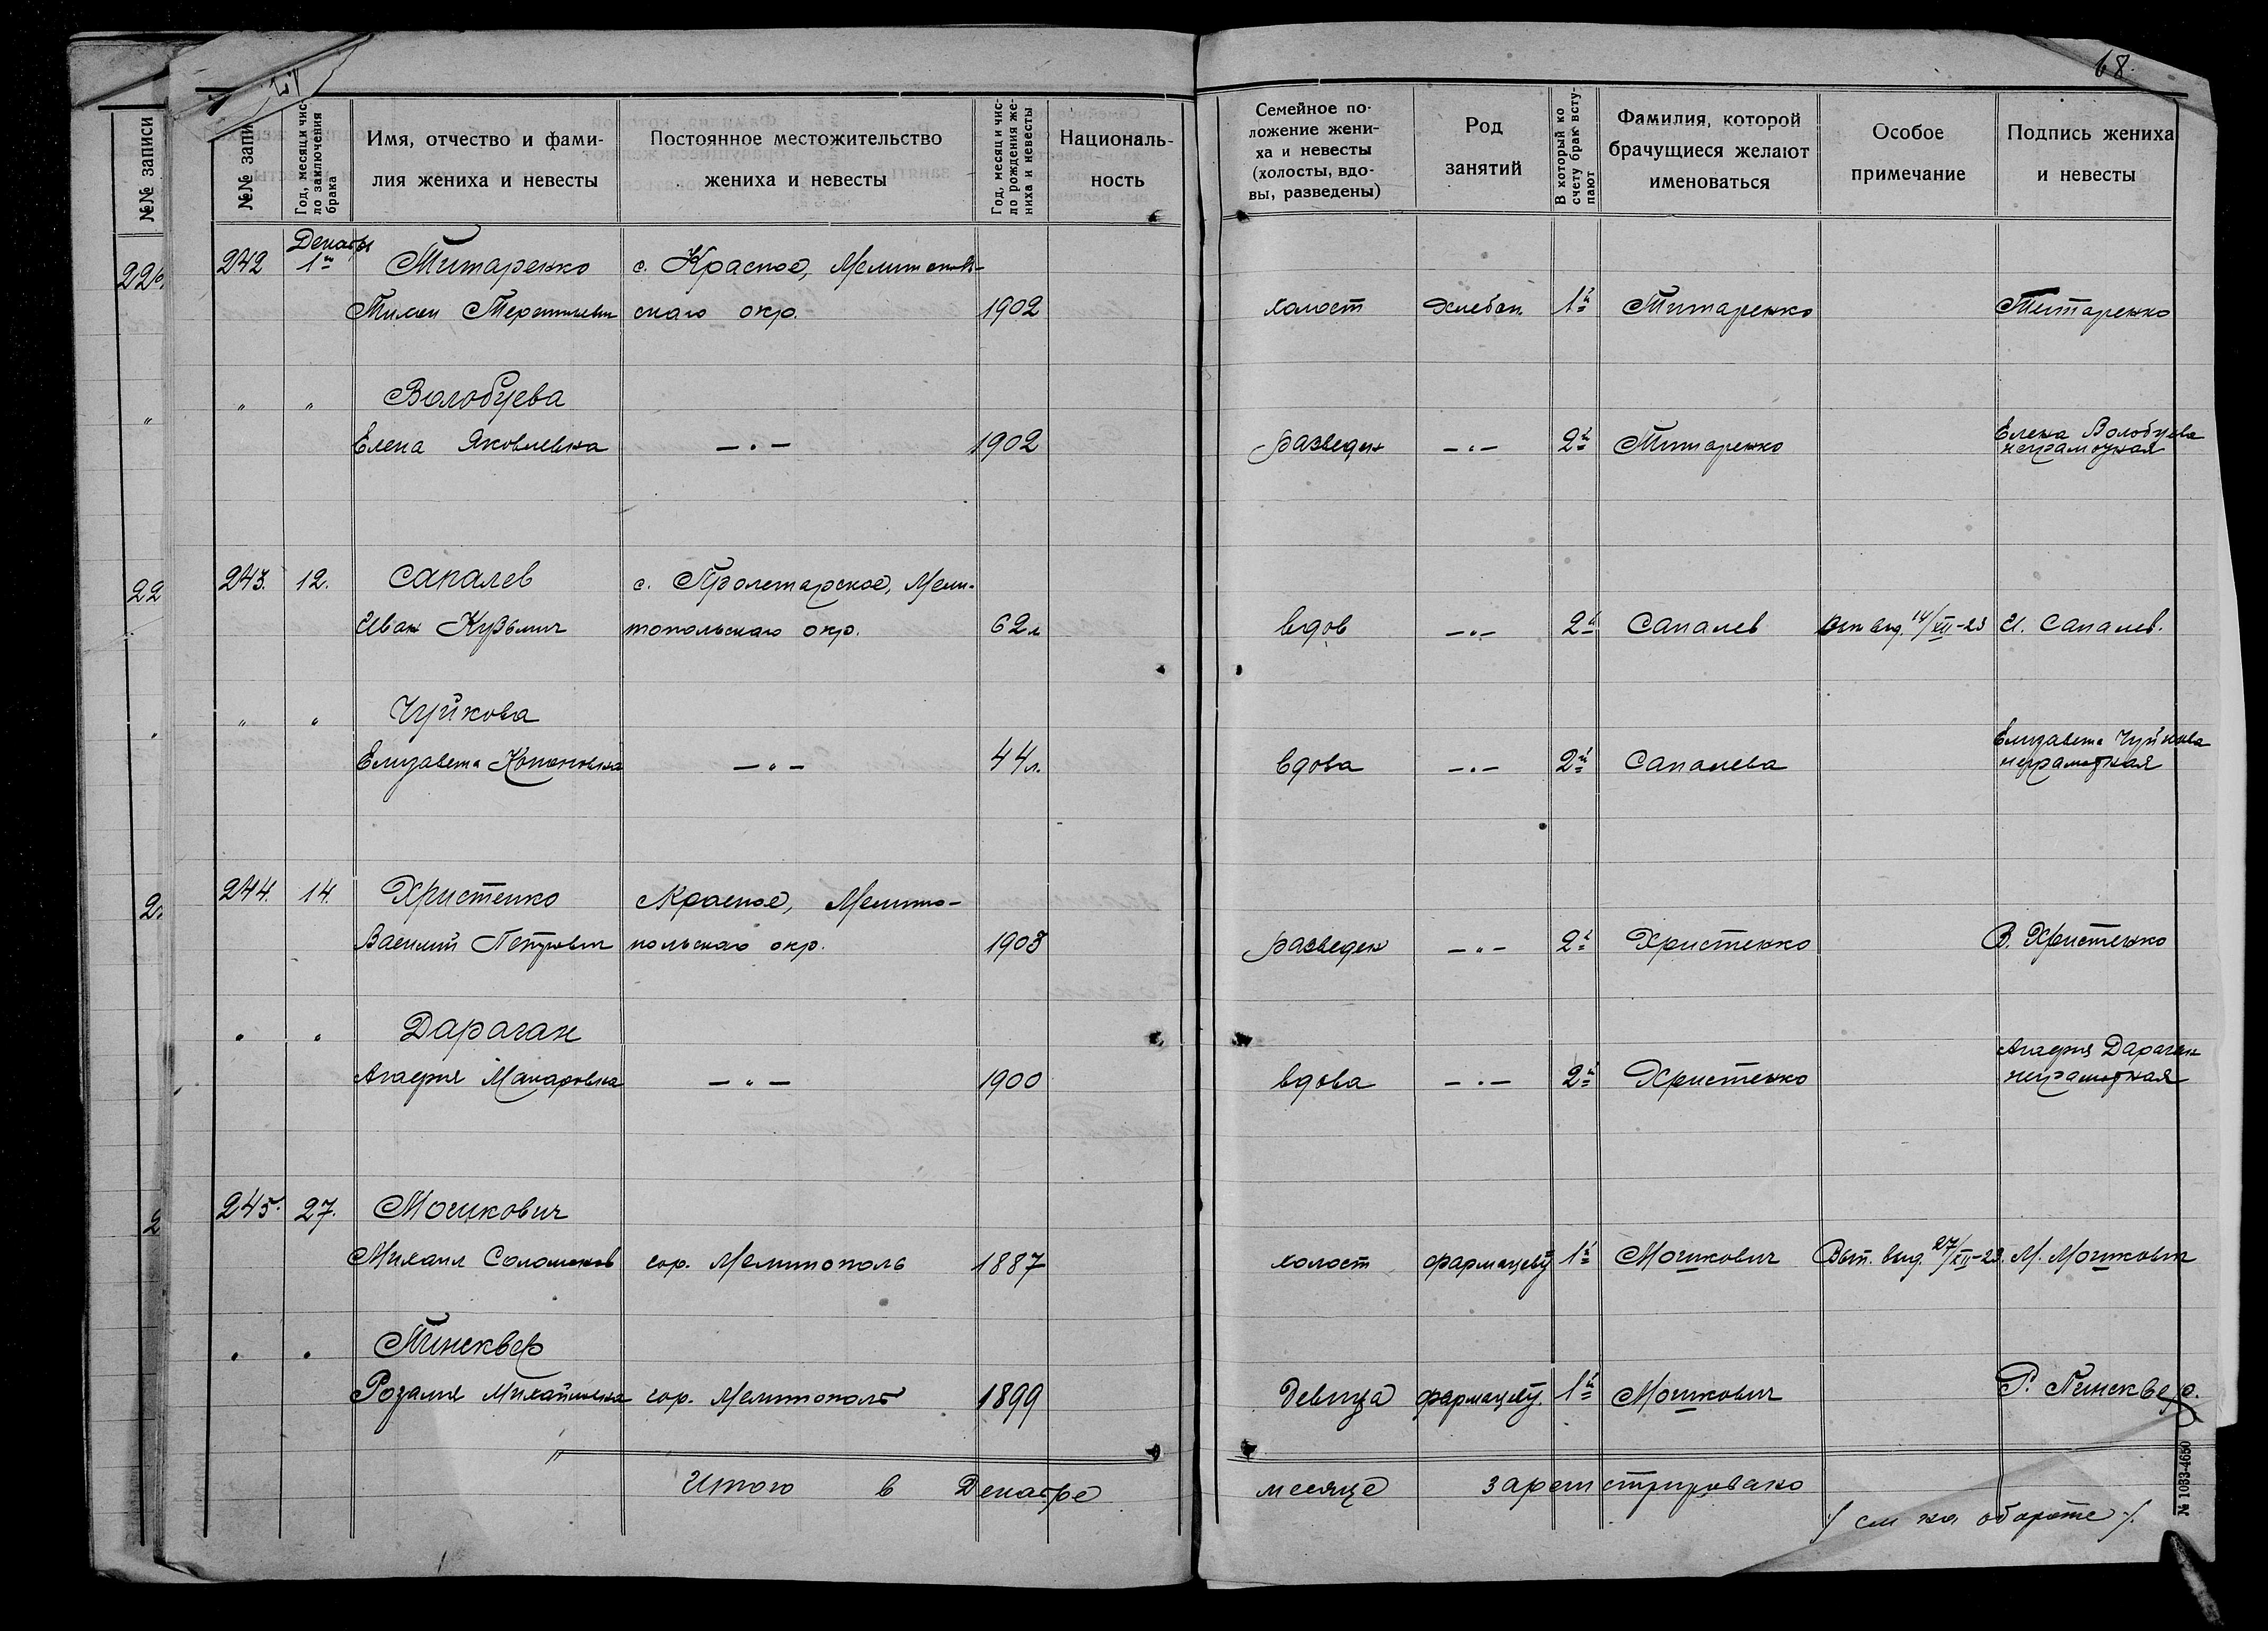 68.
№№ записи
№№ запи
Год, месяц и чис-
ло заключения
брака
Имя, отчество и фами-
лия жениха и невесты
Постоянное местожительство
жениха и невесты
Год, месяц и чис-
ло рождения же-
ниха и невесты
Националь-
ность
Семейное по-
ложение жени-
ха и невесты
(холосты, вдо-
вы, разведены)
Род
занятий
В который ко
счету брак всту-
пают
Фамилия, которой
брачущиеся желают
именоваться
Особое
примечание
Подпись жениха
и невесты
Декабрь
242 1й Титаренко с. Красное, Мелитополь-
ского окр. 1902 холост Хлебоп. 1й Титаренко Титаренко
" " Волобуева
Елена Яковлевна —"— 1902 разведен —"— 2й Титаренко Елена Волобуева
неграмотная
243. 12. Сапалев с. Пролетарское, Мели-
Иван Кузьмич топольского окр. 62л вдов —"— 2й Сапалев вып. выд. 14/XII-23 И. Сапалев.
" " Чуйкова
Елизавета Кононовна —"— 44л. вдова —"— 2й Сапалева Елизавета Чуйкова
неграмотная
244. 14. Христенко Красное, Мелито-
Василий Петрович польского окр. 1903 разведен —"— 2й Христенко В. Христенко
" " Дараган
Агафия Макаровна —"— 1900 вдова —"— 2й Христенко Агафия Дараган
неграмотная
245. 27. Мошкович
Михаил Соломонов гор. Мелитополь 1887 холост фармацевт 1й Мошкович Вып. выд. 27/XII-23. М. Мошкович
" " Пинсквер
Розалия Михайловна гор. Мелитополь 1899 девица фармацевт. 1й Мошкович Р. Пинсквер.
Итого в Декабре месяце зарегистрировано
/ см на обороте /.
№ 1033-4650